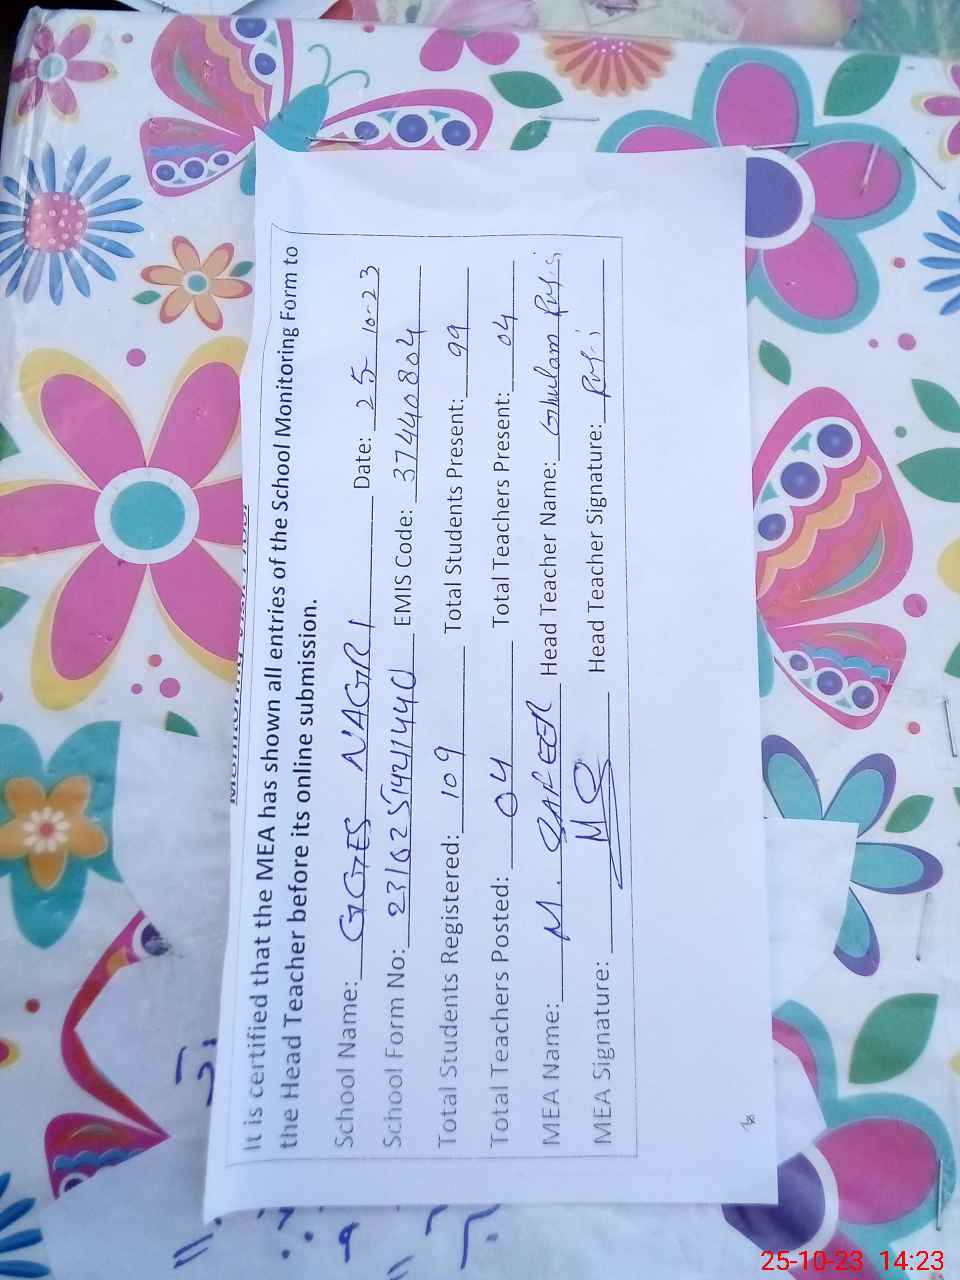 It is certified that the MEA has shown all entries of the School Monitoring Form to
the Head Teacher before its online submission.
School Name: GGES NAGRI Date: 25-10-23
School Form No: 231025142141440 EMIS Code: 37440804
Total Students Registered: 109 Total Students Present: 99
Total Teachers Posted: 04 Total Teachers Present: 04
MEA Name: M. SAFEER Head Teacher Name: Ghulam
MEA Signature: MS Head Teacher Signature:
25-10-23 14:23